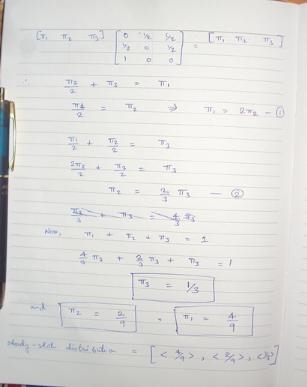 [π₁ π₂ π₃] [0 ½ ½; ½ 0 ½; 1 0 0] = [π₁ π₂ π₃]
∴ π₂/2 + π₃ = π₁
π₁/2 = π₂ ⇒ π₁ = 2π₂ — ①
π₁/2 + π₂/2 = π₃
2π₂/2 + π₂/2 = π₃
π₂ = 2/3 π₃ — ②
Now, π₁ + π₂ + π₃ = 1
4/3 π₃ + 2/3 π₃ + π₃ = 1
π₃ = 1/3
and π₂ = 2/9 , π₁ = 4/9
steady-state distribution = [< 4/9 > , < 2/9 > , < 1/3 >]